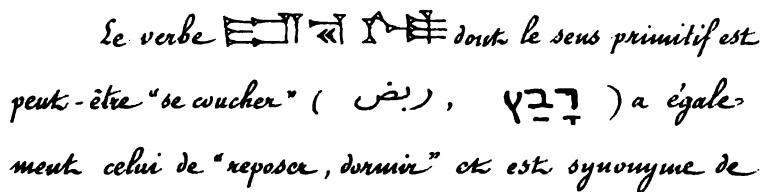 Le verbe dont le sens primitif est
peut-être "se coucher" ( ربض , רָבַץ ) a égale-
ment celui de "reposer, dormir" et est synonyme de